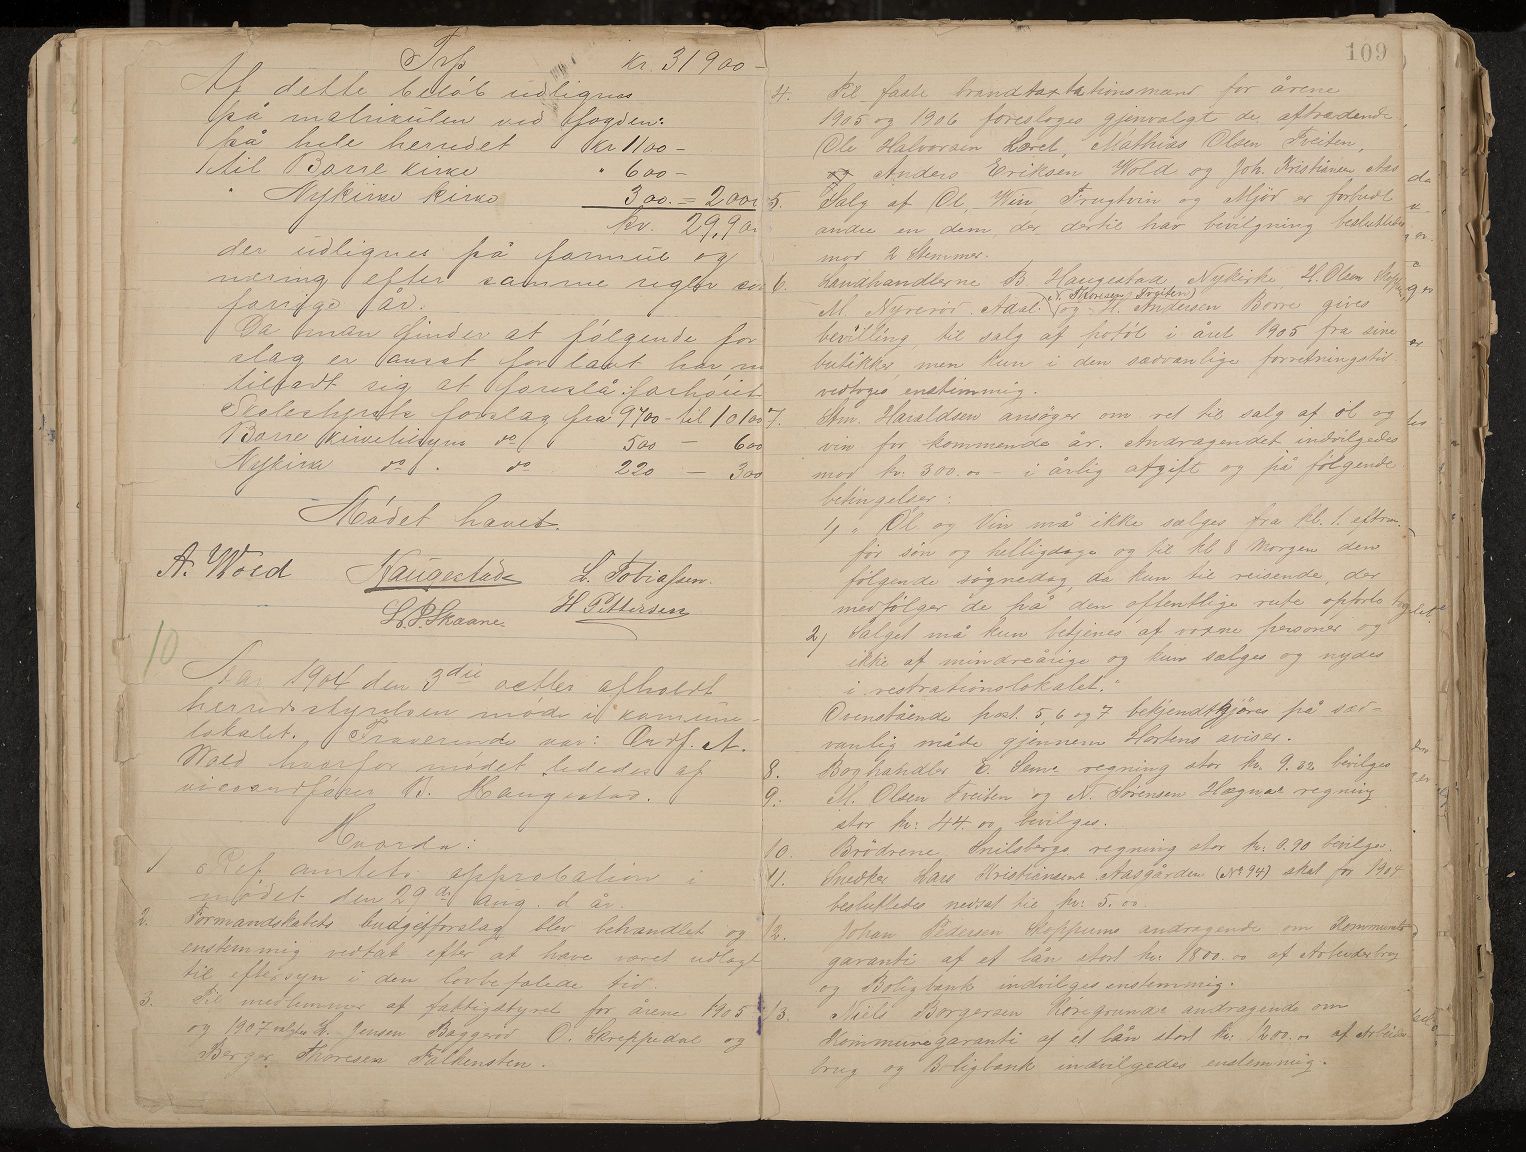 Trp kr. 31900 -
Af dette beløb udlignes
på matrikulen ved fogden:
på hele herredet kr 1100 -
til Borre kirke " 600 -
" Nykirke kirke 300. = 2000
kr. 29,900
der udlignes på formue og
næring efter samme regler som
forrige år.
Da man finder at følgende for
slag er ansat for lavt har m
tilladt sig at foreslå forhøiet
Skolestyrets forslag fra 9700 - til 10100
Borre kirketilsyns do 500 - 600
Nykirke do. do 220 - 300
Mødet hævet.
A. Wold Haugestad L. Tobiassen.
L. P. Skaane. H Pettersen
10
Aar 1904 den 3die octbr afholdt
herredsstyrelsen møde i komune-
lokalet. Fraværende var: Ordf. A.
Wold hvorfor mødet lededes af
viceordfører B. Haugestad.
Hvorda:
1 Ref. amtets approbation i
mødet den 29de aug. d. år.
2. Formandskabets budgetforslag blev behandlet og
enstemmig vedtat efter at have været udlagt
til eftersyn i den lovbefalede tid.
3. Til medlemmer af fattigstyret for årene 1905
og 1907 valgtes L. Jensen Baggerød O. Skreppedal og
Berger Thoresen Falkensten.
109
4. Til faste brandtaxtationsmænd for årene
1905 og 1906 foresloges gjenvalgt de aftrædende
Ole Halvorsen Løret, Mathias Olsen Tveiten,
og Anders Eriksen Wold og Joh. Kristiansen Aas
5. Salg af Øl, Vin Frugtvin og Mjød er forbudt
andre en dem, der dertil har bevilgning besluttedes
mod 2 Stemmer.
6. Landhandlerne B. Haugestad Nykirke, H. Olsen Skoppum
M. Nyrerød Adal. (N. Thoresen Tveiten) og H. Andersen Borre gives
bevilling til salg af potøl i året 1905 fra sine
butikker, men kun i den sædvanlige forretningstid
vedtoges enstemmig.
7. Am. Haraldsen ansøger om ret til salg af øl og
vin for kommende år. Andragendet indvilgedes
mod kr. 300.00 - i årlig afgift og på følgende
betingelser:
1, " Øl og Vin må ikke sælges fra kl. 1. efterm.
før søn og helligdage og til kl 8 Morgen den
følgende søgnedag, da kun til reisende, der
medfølger de på den offentlige rute optoto
2, Salget må kun betjenes af voxne personer og
ikke af mindreårige og kun sælges og nydes
i restrationslokalet."
Ovenstående post. 5, 6 og 7 bekjendtgjøres på sæd-
vanlig måde gjennem Hortens aviser.
8. Boghandler C. Sems regning stor kr. 9.32 bevilges
9. M. Olsen Tveiten og N. Sørensen Hægnas regning
stor kr: 44.00 bevilges.
10. Brødrene Snilsbergs regning stor kr. 0.90 bevilges.
11. Snedker Lars Kristiansens Aasgården (No 94) skat for 1904
besluttedes nedsat til kr. 5.00
12. Johan Pedersen Skoppums andragende om Kommune
garanti af et lån stort kr. 1800.00 af Arbeiderbrug
og Boligbank indvilges enstemmig.
13. Niels Borgersen Røregrunds andragende om
Kommunegaranti af et lån stort kr. 200.00 af Arbeider
brug og Boligbank indvilgedes enstemmig.